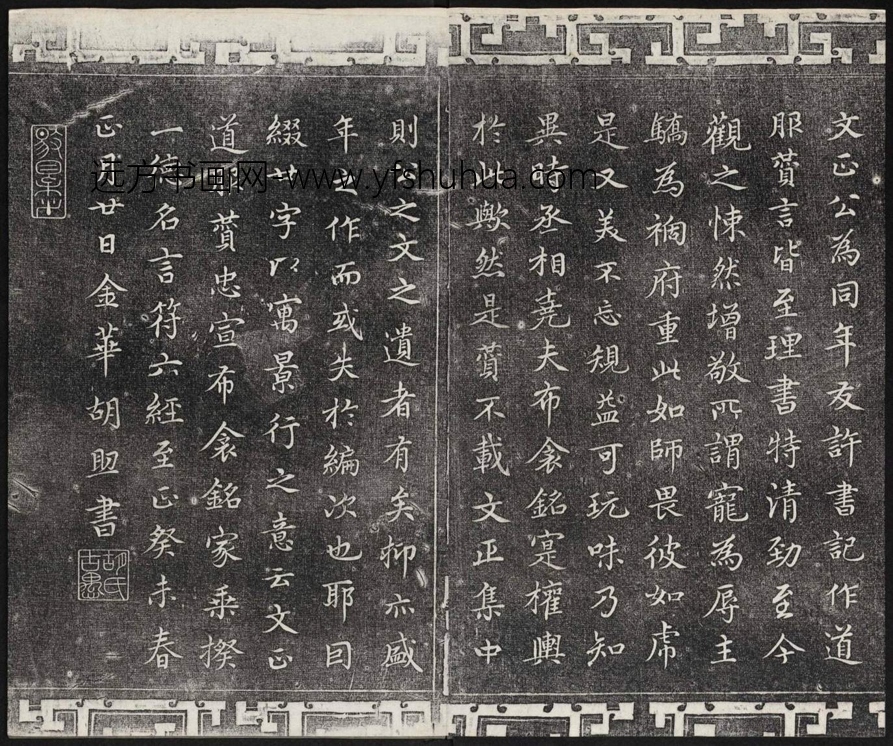 文正公為同年友許書記作道
服賛言皆至理書特清勁至今
觀之悚然增敬所謂寵為辱主
驕為禍府重此如師畏彼如虎
是又美不忘規益可玩味乃知
異時丞相堯夫布衾銘寔權輿
於此歟然是賛不載文正集中
則公之文之遺者有矣抑亦盛
年之作而或失於編次也耶因
綴廿字以寓景行之意云文正
道服賛忠宣布衾銘家乘揆
一德名言符六經至正癸未春
正月廿日金華胡助書
胡氏古愚
远方书画网-www.yfshuhua.com